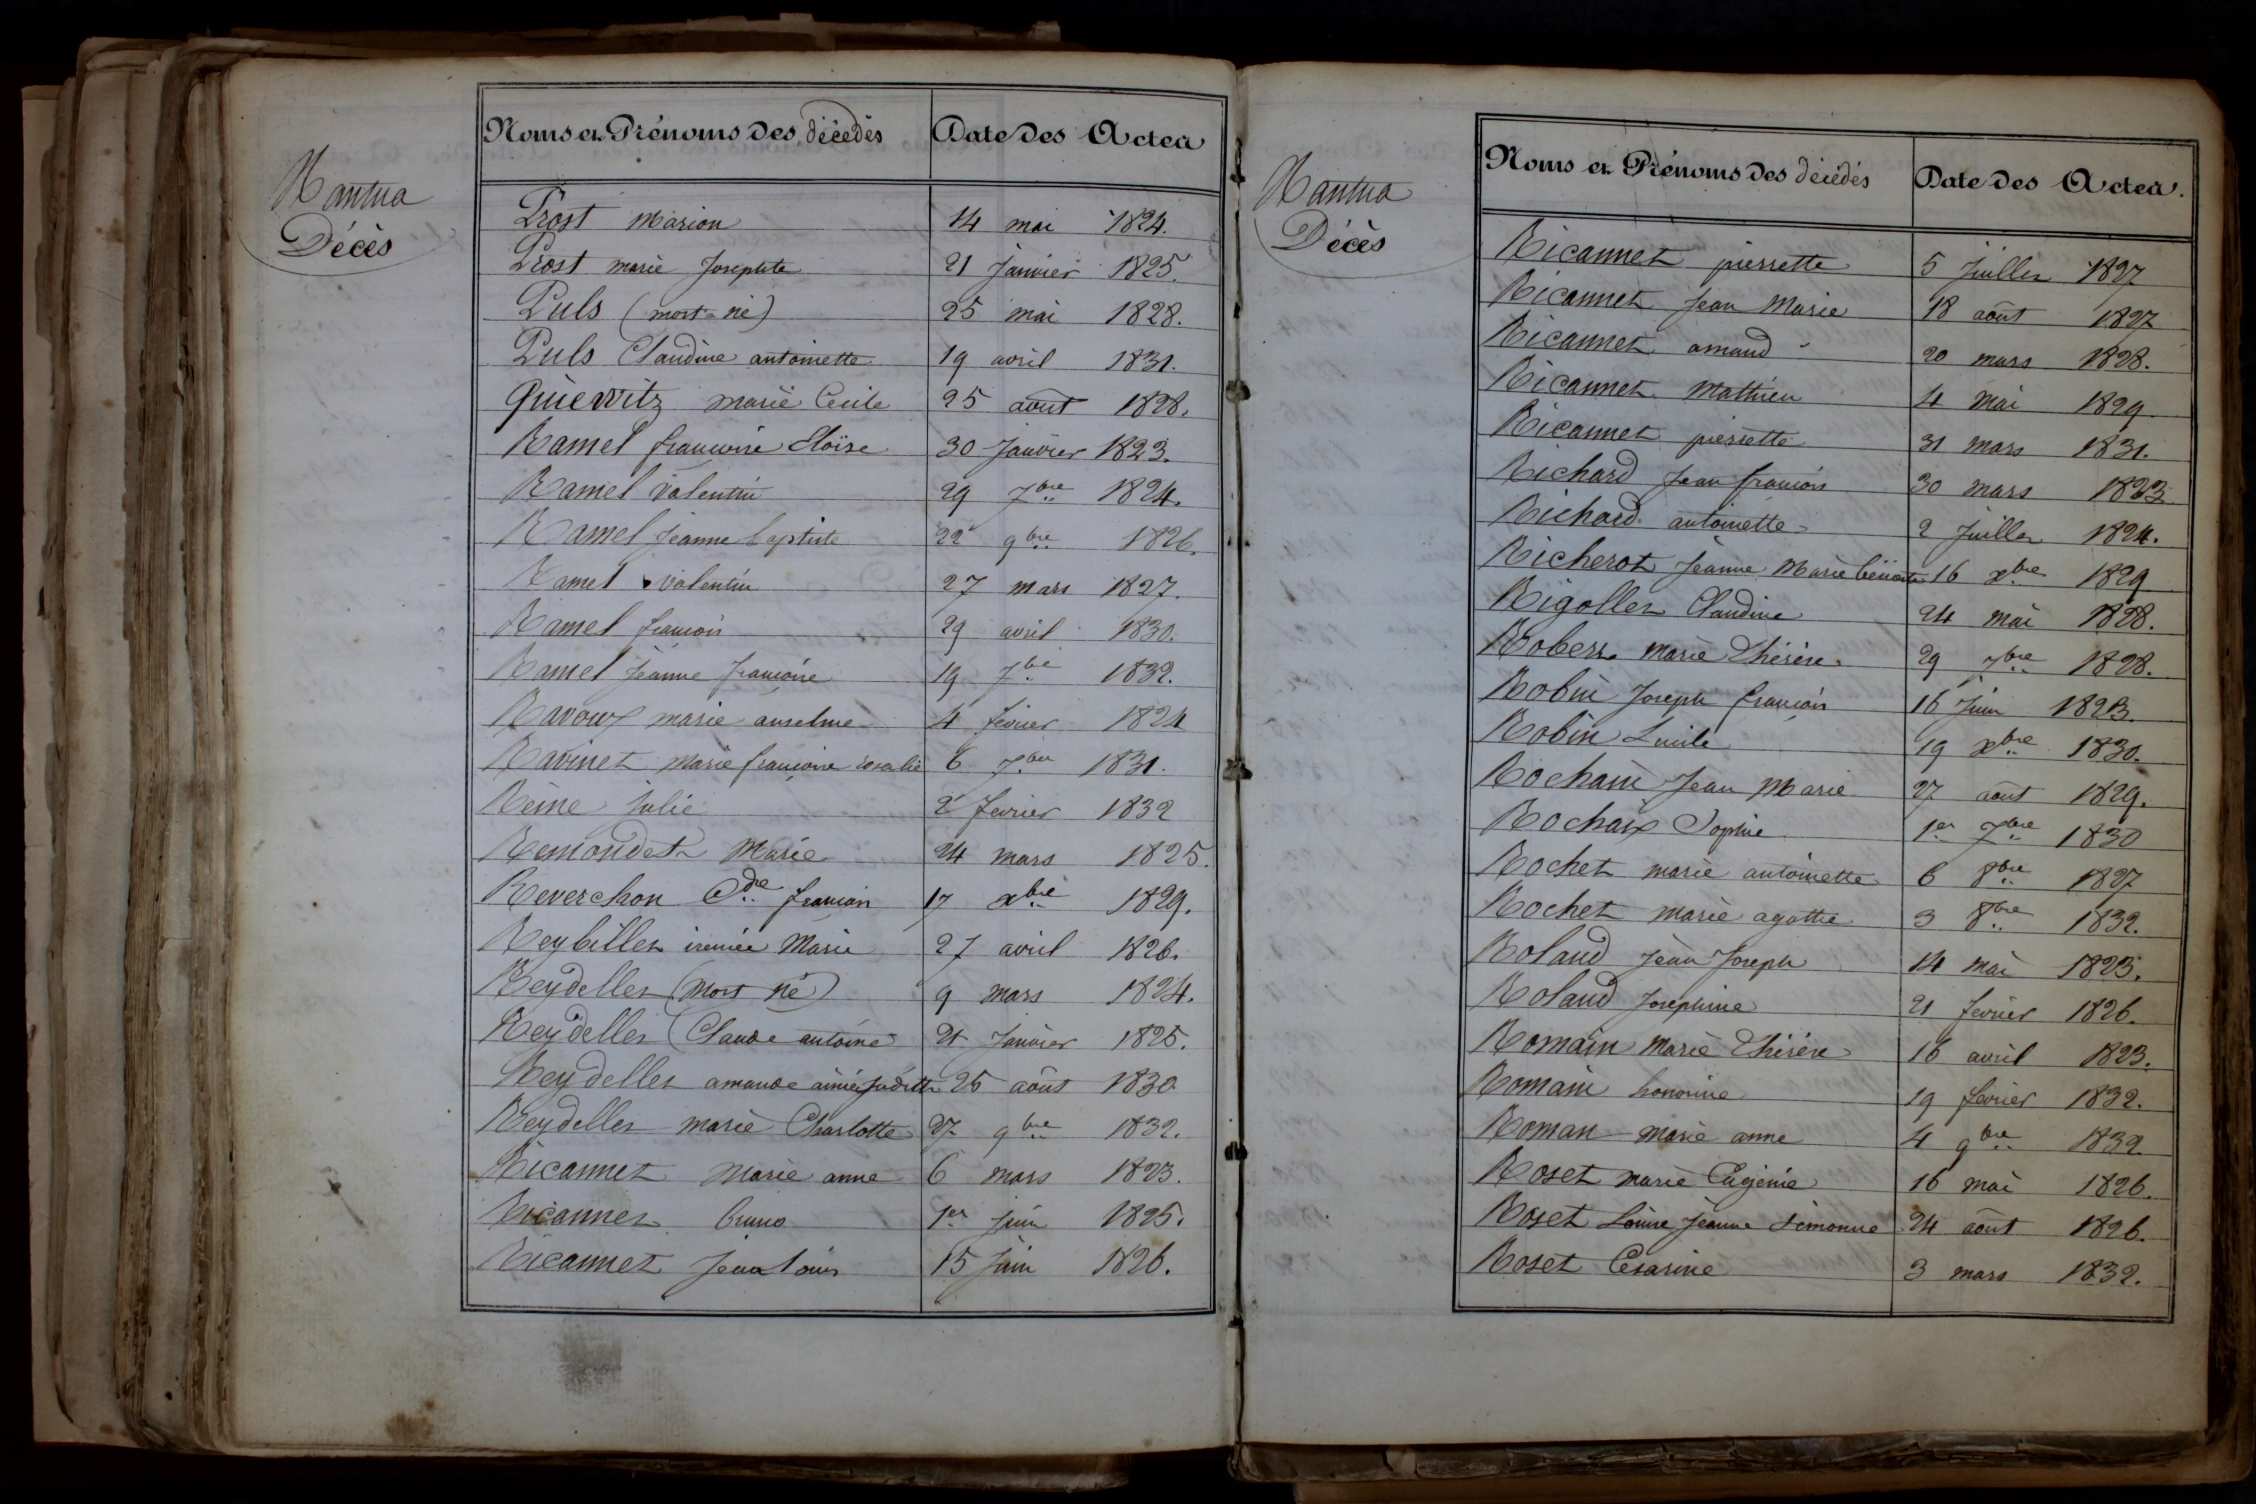 Nantua
Décès
Noms et Prénoms des décédés Date des Actes
Prost Marion 14 mai 1824.
Prost marie Josephte 21 Janvier 1825.
Puls (mort-né) 25 mai 1828.
Puls Claudine antoinette 19 avril 1831.
Quiewitz marie Cecile 25 août 1828.
Ramel francoise Eloïse 30 Janvier 1823.
Ramel Valentin 29 7bre 1824.
Ramel Jeanne baptiste 22 9bre 1826.
Ramel valentin 27 mars 1827.
Ramel francois 29 avril 1830.
Ramel Jeanne francoise 19 7bre 1832.
Ravoux marie anselme 4 fevrier 1824
Ravinet Marie francoise rosalie 6 7bre 1831.
Reine Julie 2 fevrier 1832
Remondet Marie 24 mars 1825.
Reverchon Cde francois 17 xbre 1829.
Reybillet irenée Marie 27 avril 1826.
Reydellet (mort né) 9 mars 1824.
Reydellet Claude antoine 21 Janvier 1825.
Reydellet amande aimée Judith 25 août 1830
Reydellet marie Charlotte 27 9bre 1832.
Ricannet Marie anne 6 mars 1823.
Ricannet bruno 1er Juin 1825.
Ricannet Jean louis 15 Juin 1826.
Nantua
Décès
Noms et Prénoms des décédés Date des Actes.
Ricannet pierrette 5 Juillet 1827
Ricannet Jean Marie 18 août 1827
Ricannet amand 20 mars 1828.
Ricannet Mathieu 4 Mai 1829.
Ricannet pierrette 31 mars 1831.
Richard Jean francois 30 mars 1823
Richard antoinette 2 Juillet 1824.
Richerot Jeanne Marie bénoite 16 xbre 1829
Rigollet Claudine 24 mai 1828.
Robert marie Thérèse 29 7bre 1828.
Robin Joseph francois 16 Juin 1823.
Robin Lucile 19 xbre 1830.
Rochaix Jean Marie 27 août 1829.
Rochaix Sophie 1er 7bre 1830
Rochet marie antoinette 6 8bre 1827
Rochet marie agathe 3 8bre 1832.
Roland Jean Joseph 14 mai 1823.
Roland Josephine 21 fevrier 1826.
Romain Marie Thérèse 16 avril 1823.
Romain honorine 19 fevrier 1832.
Roman marie anne 4 9bre 1832.
Roset Marie Eugénie 16 mai 1826.
Roset Louise Jeanne Simonne 24 août 1826.
Roset Césarine 3 mars 1832.